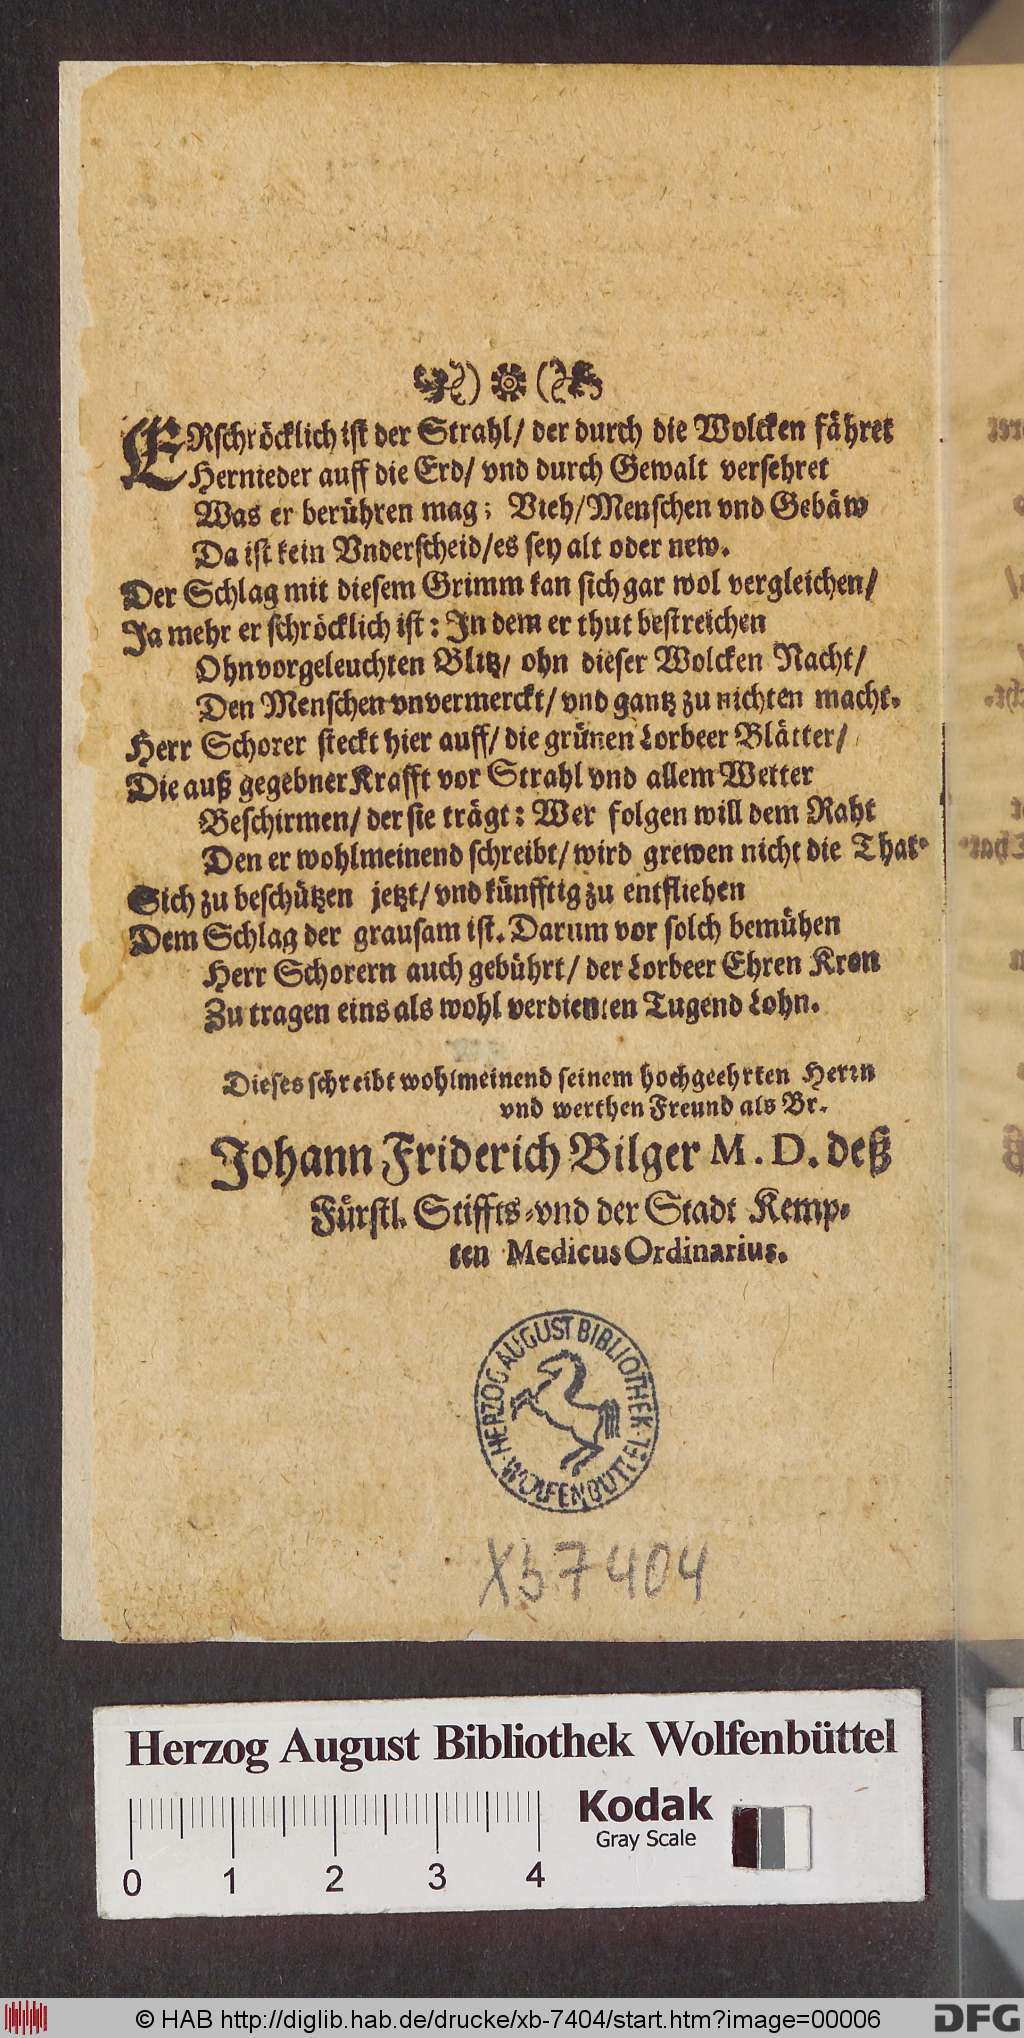 ERschröcklich ist der Strahl/ der durch die Wolcken fähret
Hernieder auff die Erd/ vnd durch Gewalt versehret
Was er berühren mag; Vieh/ Menschen vnd Gebäw
Da ist kein Vnderscheid/ es sey alt oder new.
Der Schlag mit diesem Grimm kan sich gar wol vergleichen/
Ja mehr er schröcklich ist: In dem er thut bestreichen
Ohn vorgeleuchten Blitz/ ohn dieser Wolcken Nacht/
Den Menschen vnvermerckt/ vnd gantz zu nichten macht.
Herr Schorer steckt hier auff/ die grünen Lorbeer Blätter/
Die auß gegebner Krafft vor Strahl vnd allem Wetter
Beschirmen/ der sie trägt: Wer folgen will dem Raht
Den er wohlmeinend schreibt/ wird grewen nicht die That
Sich zu beschützen jetzt/ vnd künfftig zu entfliehen
Dem Schlag der grausam ist. Darum vor solch bemühen
Herr Schorern auch gebührt/ der Lorbeer Ehren Kron
Zu tragen eins als wohl verdienten Tugend Lohn.
Dieses schreibt wohlmeinend seinem hochgeehrten Herrn
vnd werthen Freund als Br.
Johann Friderich Bilger M. D. deß
Fürstl. Stiffts- vnd der Stadt Kemp-
ten Medicus Ordinarius.
HERZOG AUGUST BIBLIOTHEK · WOLFENBÜTTEL ·
Xb 7404
Herzog August Bibliothek Wolfenbüttel
Kodak
Gray Scale
0 1 2 3 4
© HAB http://diglib.hab.de/drucke/xb-7404/start.htm?image=00006
DFG